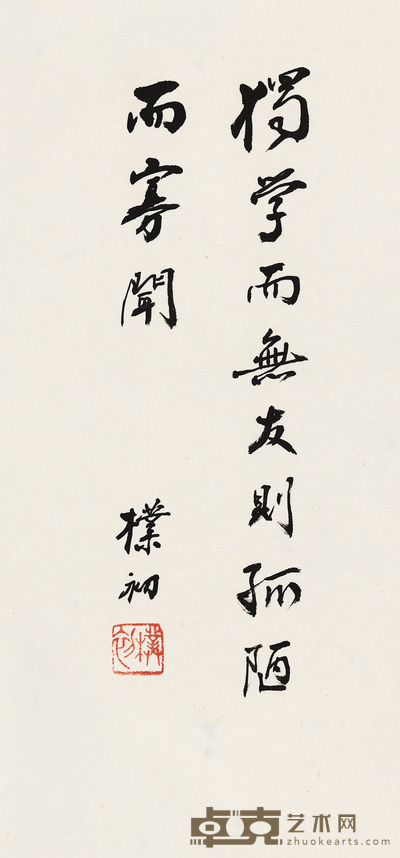 獨学而無友則孤陋
而寡聞
樸初
樸初
卓克艺术网
zhuokearts.com